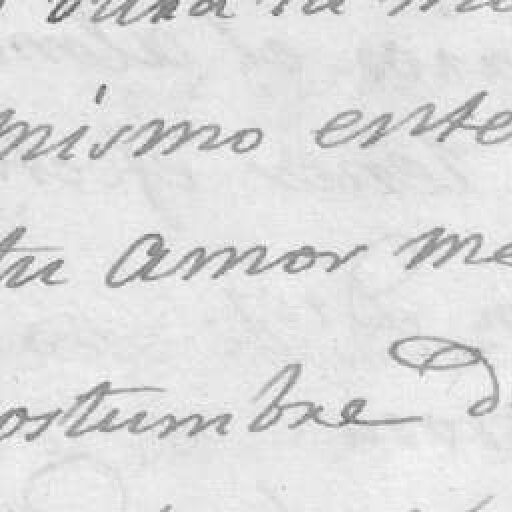 mismo ente
tu amor me
ostumbre d